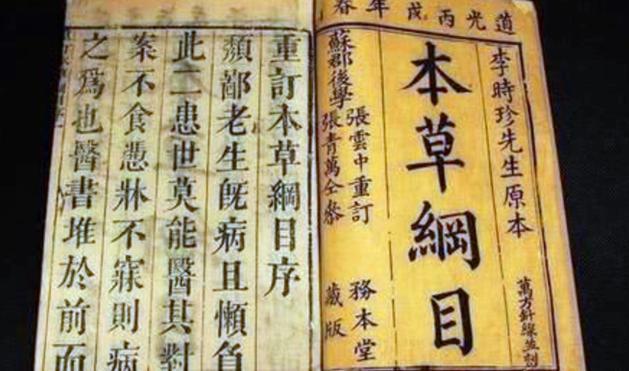 道光丙戌年春
李時珍先生原本
本草綱目
萬方針線並刻
張雲中重訂
蘇郡後學
張青萬仝參
務本堂
藏版
重訂本草綱目序
頻鄙老生旣病且懶負
此二患世莫能醫其對
案不食憑牀不寐則病
之爲也醫書堆於前而